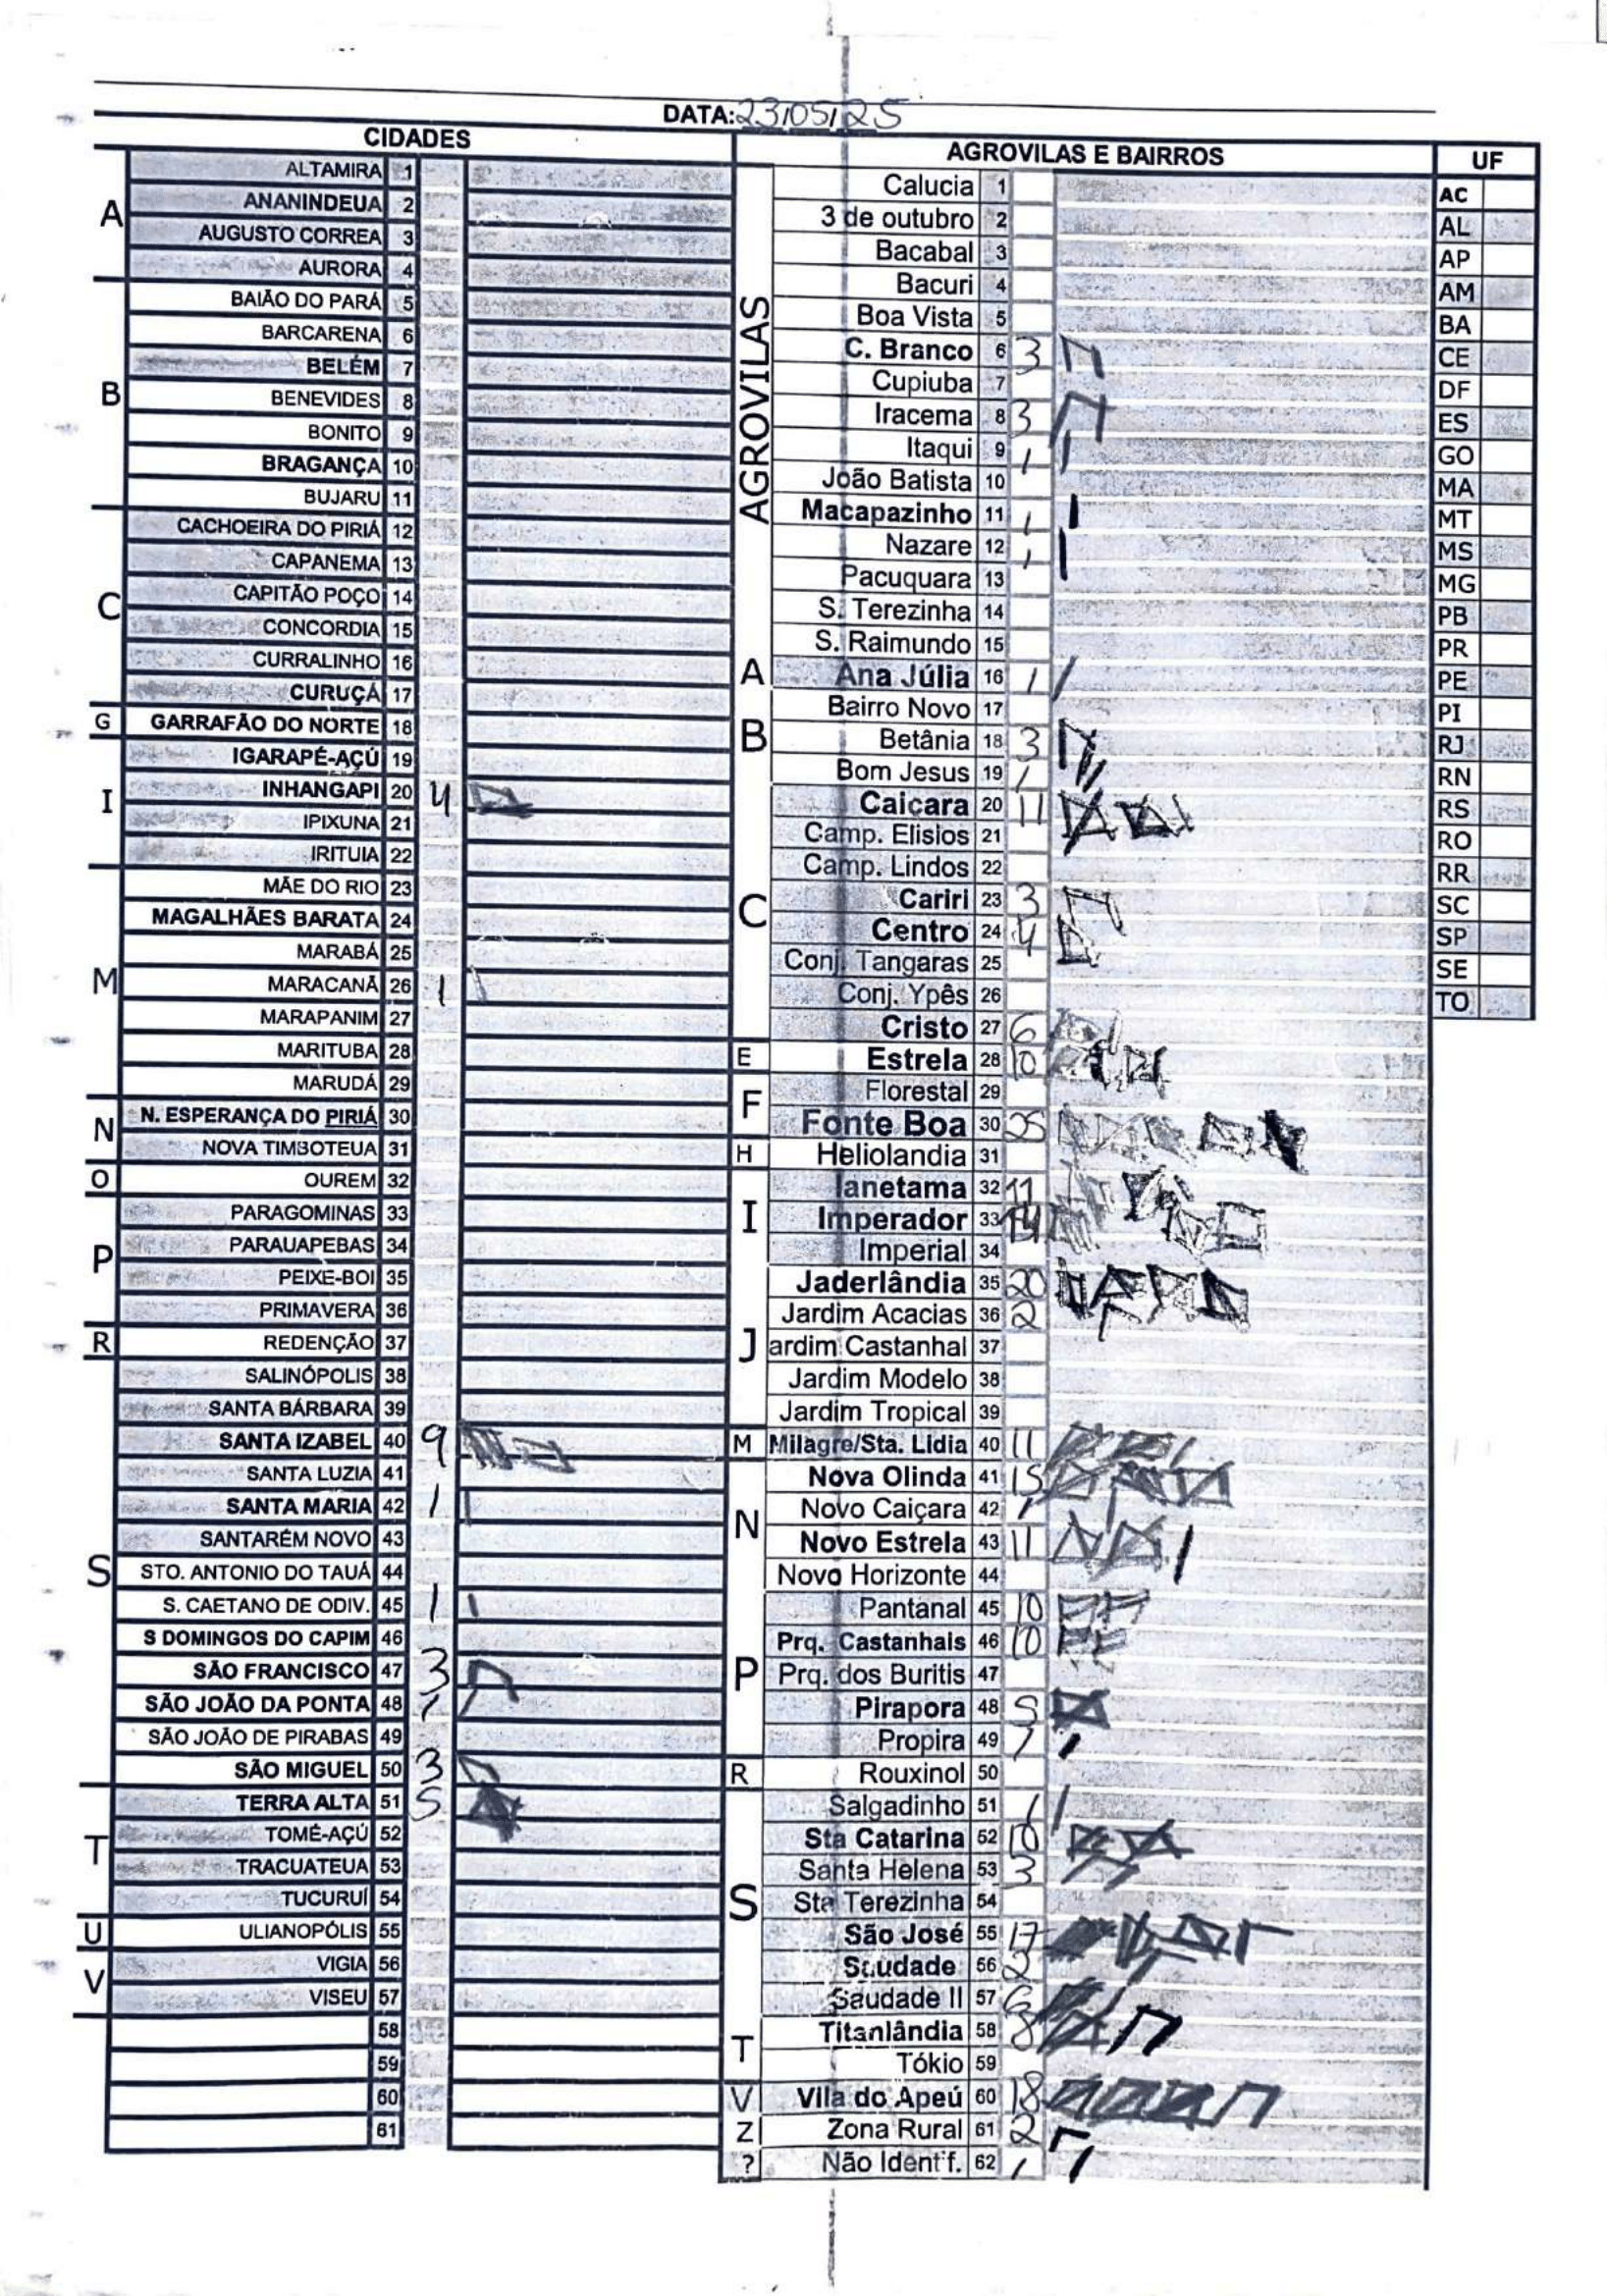 DATA: 23/05/25
CIDADES
AGROVILAS E BAIRROS
UF
A
ALTAMIRA 1
ANANINDEUA 2
AUGUSTO CORREA 3
AURORA 4
B
BAIÃO DO PARÁ 5
BARCARENA 6
BELÉM 7
BENEVIDES 8
BONITO 9
BRAGANÇA 10
BUJARU 11
C
CACHOEIRA DO PIRIÁ 12
CAPANEMA 13
CAPITÃO POÇO 14
CONCORDIA 15
CURRALINHO 16
CURUÇÁ 17
G
GARRAFÃO DO NORTE 18
I
IGARAPÉ-AÇÚ 19
INHANGAPI 20 4
IPIXUNA 21
IRITUIA 22
M
MÃE DO RIO 23
MAGALHÃES BARATA 24
MARABÁ 25
MARACANÃ 26 1
MARAPANIM 27
MARITUBA 28
MARUDÁ 29
N
N. ESPERANÇA DO PIRIÁ 30
NOVA TIMBOTEUA 31
O
OUREM 32
P
PARAGOMINAS 33
PARAUAPEBAS 34
PEIXE-BOI 35
PRIMAVERA 36
R
REDENÇÃO 37
S
SALINÓPOLIS 38
SANTA BÁRBARA 39
SANTA IZABEL 40 9
SANTA LUZIA 41
SANTA MARIA 42 1
SANTARÉM NOVO 43
STO. ANTONIO DO TAUÁ 44
S. CAETANO DE ODIV. 45 1
S DOMINGOS DO CAPIM 46
SÃO FRANCISCO 47 3
SÃO JOÃO DA PONTA 48 1
SÃO JOÃO DE PIRABAS 49
SÃO MIGUEL 50 3
T
TERRA ALTA 51 5
TOMÉ-AÇÚ 52
TRACUATEUA 53
TUCURUÍ 54
U
ULIANOPÓLIS 55
V
VIGIA 56
VISEU 57
58
59
60
61
AGROVILAS
Calucia 1
3 de outubro 2
Bacabal 3
Bacuri 4
Boa Vista 5
C. Branco 6 3
Cupiuba 7
Iracema 8 3
Itaqui 9 1
João Batista 10
Macapazinho 11 1
Nazare 12 1
Pacuquara 13
S. Terezinha 14
S. Raimundo 15
A
Ana Júlia 16 1
B
Bairro Novo 17
Betânia 18 3
Bom Jesus 19 1
C
Caiçara 20 11
Camp. Elisios 21
Camp. Lindos 22
Cariri 23 3
Centro 24 4
Conj. Tangaras 25
Conj. Ypês 26
Cristo 27 6
E
Estrela 28 10
F
Florestal 29
Fonte Boa 30 25
H
Heliolandia 31
I
Ianetama 32 11
Imperador 33 14
Imperial 34
J
Jaderlândia 35 20
Jardim Acacias 36 2
ardim Castanhal 37
Jardim Modelo 38
Jardim Tropical 39
M
Milagre/Sta. Lidia 40 11
N
Nova Olinda 41 15
Novo Caiçara 42 1
Novo Estrela 43 11
Novo Horizonte 44
P
Pantanal 45 10
Prq. Castanhais 46 10
Prq. dos Buritis 47
Pirapora 48 5
Propira 49 1
R
Rouxinol 50
S
Salgadinho 51 1
Sta Catarina 52 10
Santa Helena 53 3
Sta Terezinha 54
São José 55 17
Saudade 56 2
Saudade II 57 6
T
Titanlândia 58 8
Tókio 59
V
Vila do Apeú 60 18
Z
Zona Rural 61 2
?
Não Identif. 62 1
AC
AL
AP
AM
BA
CE
DF
ES
GO
MA
MT
MS
MG
PB
PR
PE
PI
RJ
RN
RS
RO
RR
SC
SP
SE
TO